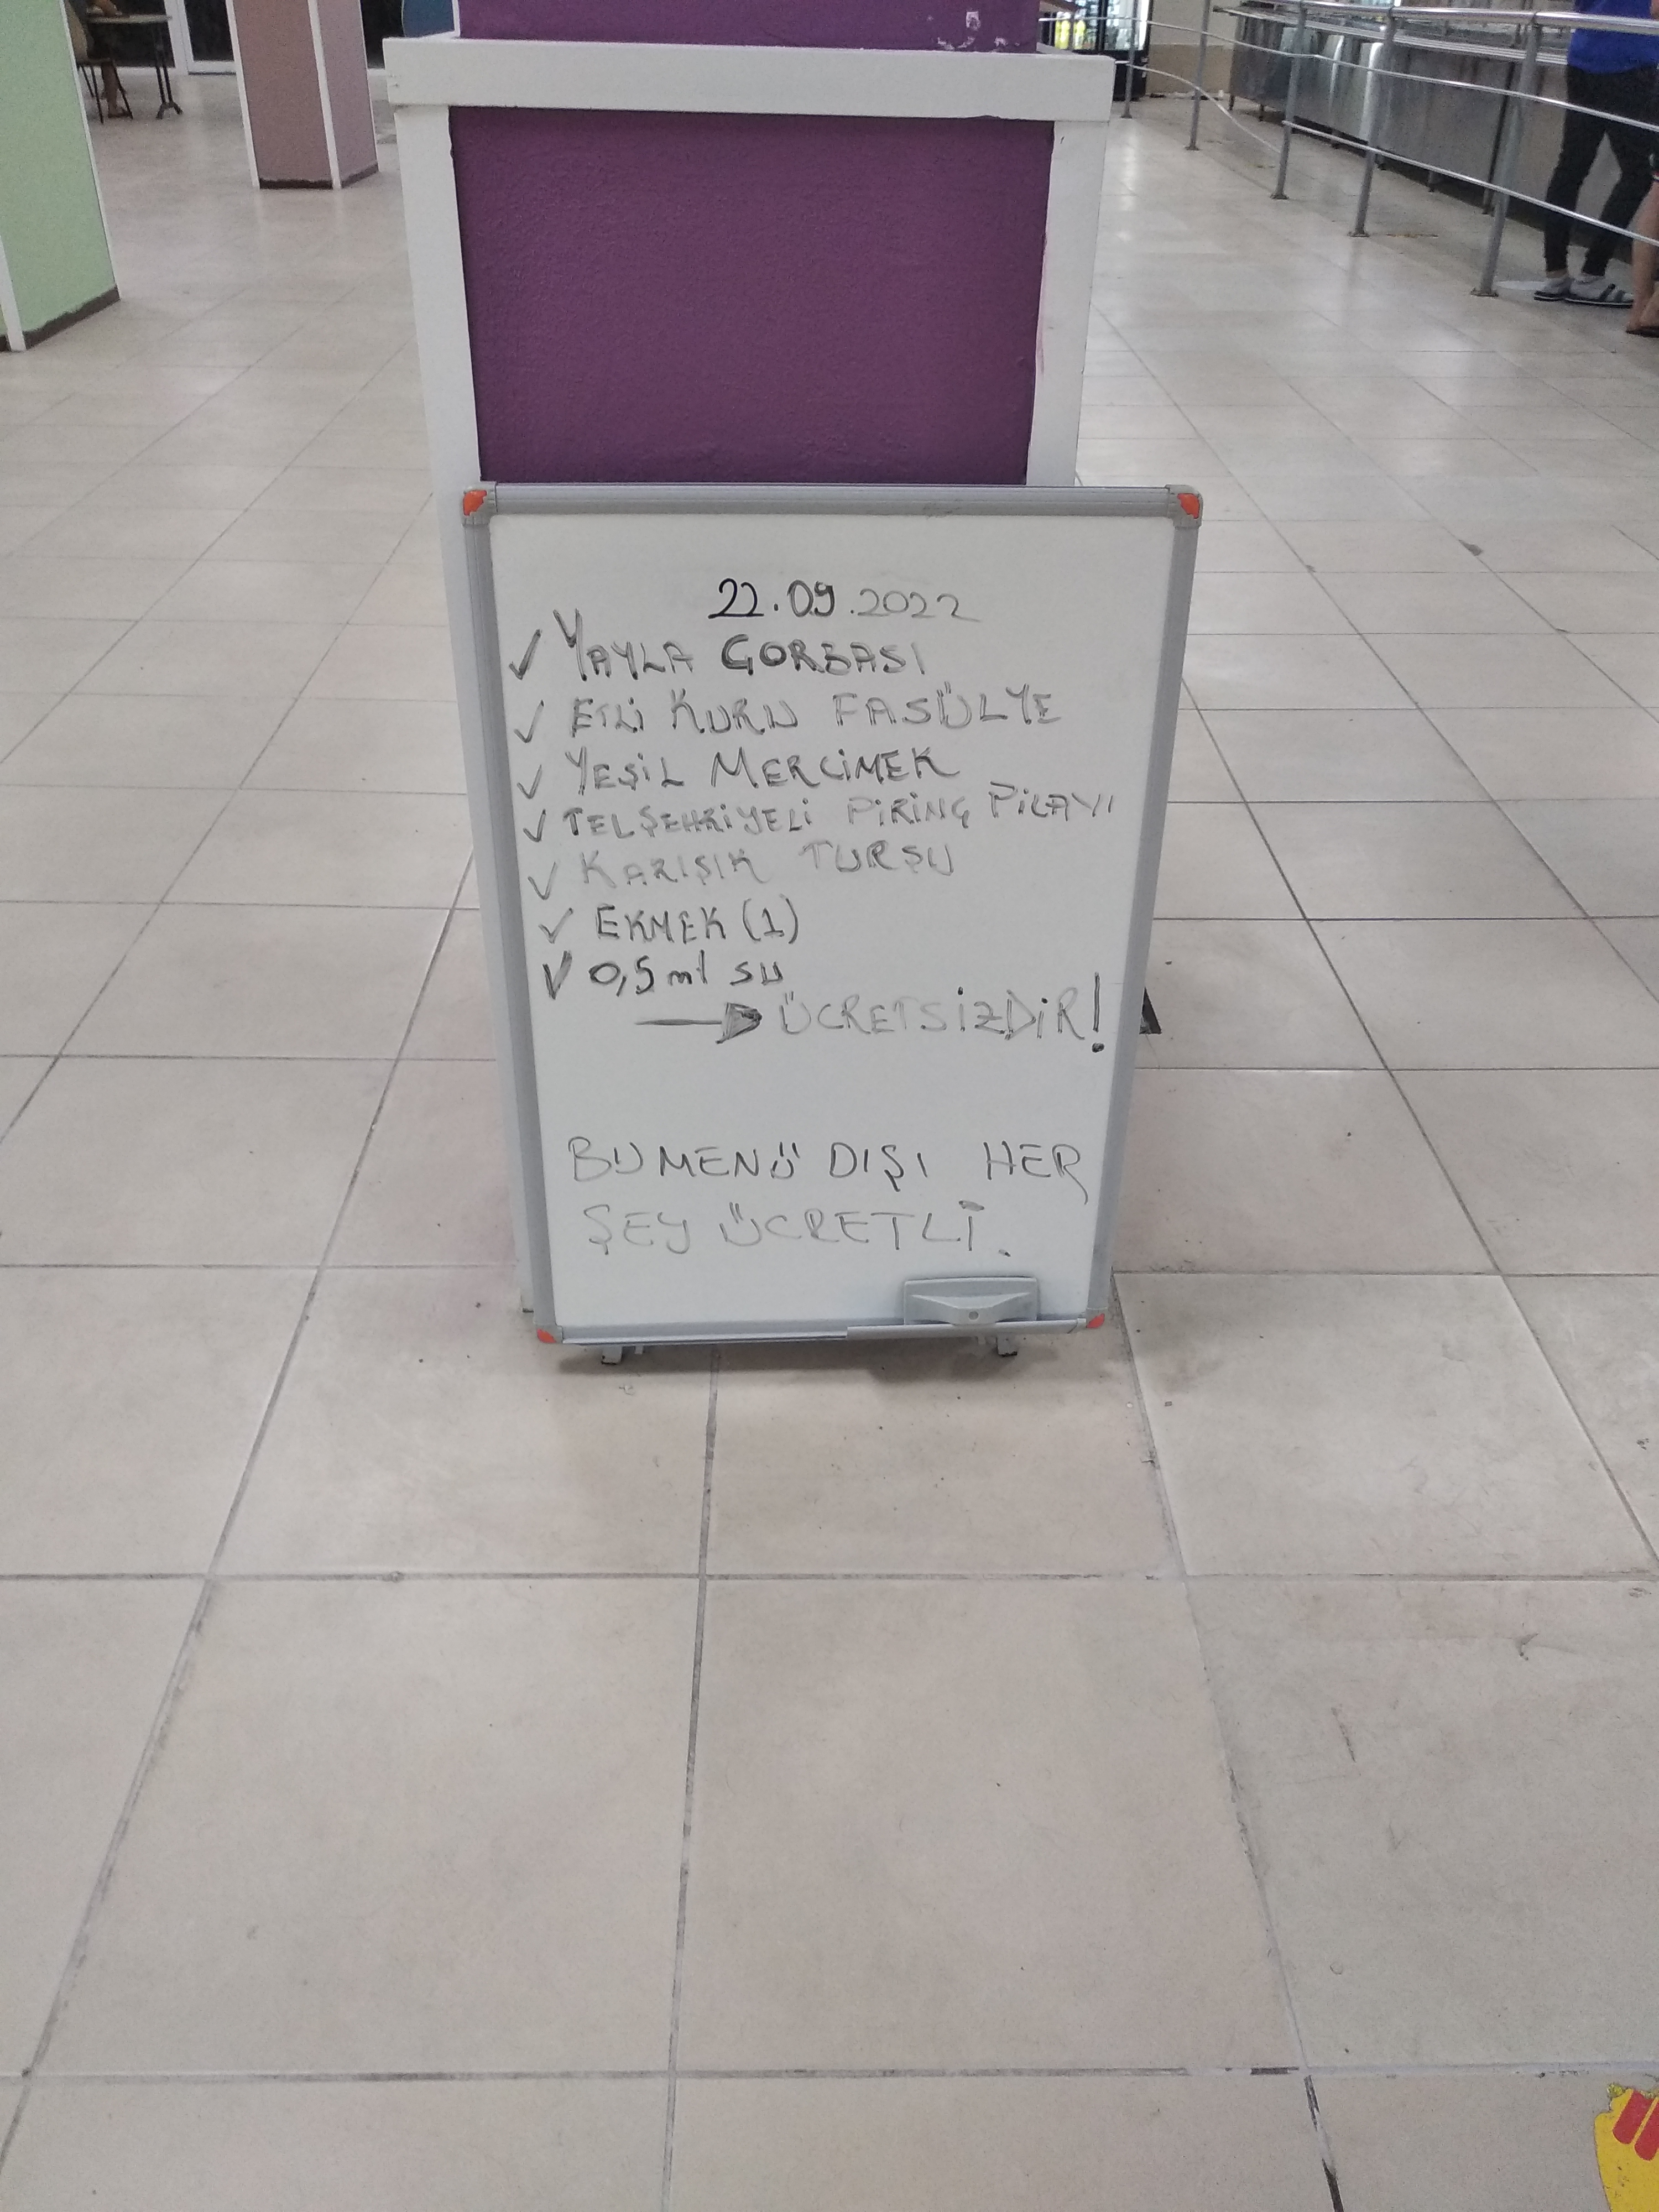 22.09.2022
✓ YAYLA ÇORBASI
✓ ETLİ KURU FASÜLYE
✓ YEŞİL MERCİMEK
✓ TELŞEHRİYELİ PİRİNÇ PİLAYI
✓ KARIŞIK TURŞU
✓ EKMEK (1)
✓ 0,5 ml su
→ ÜCRETSİZDİR!
BU MENÜ DIŞI HER
ŞEY ÜCRETLİ.